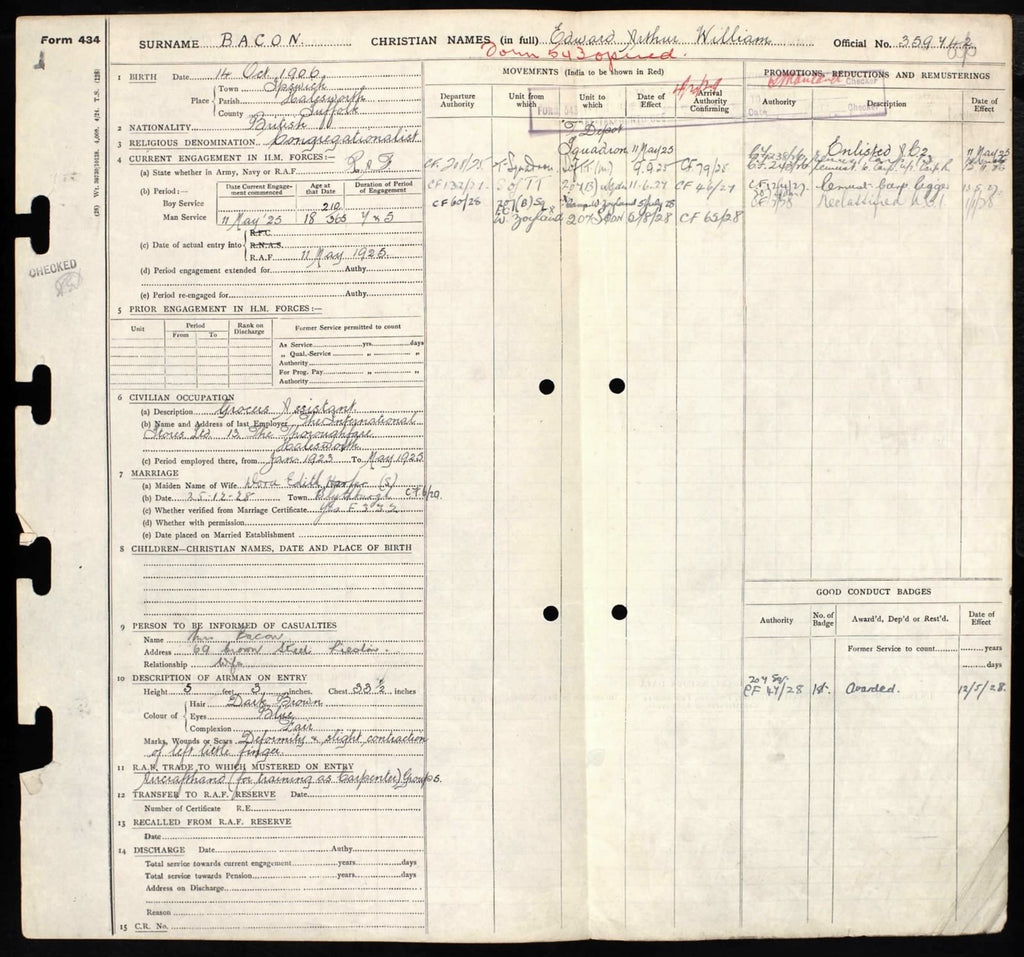 Form 434
SURNAME BACON CHRISTIAN NAMES (in full) Edward Arthur William Official No. 359742
Form 543 opened.
1 BIRTH Date 14 Oct 1906
Place Town Ipswich
Parish Halesworth
County Suffolk
2 NATIONALITY British
3 RELIGIOUS DENOMINATION Congregationalist
4 CURRENT ENGAGEMENT IN H.M. FORCES:—
(a) State whether in Army, Navy or R.A.F.
(b) Period:— Date Current Engagement commenced Age at that Date Duration of Period of Engagement
Boy Service 210
Man Service 11 May '25 18 365 7 & 5
(c) Date of actual entry into R.F.C.
R.N.A.S.
R.A.F. 11 May 1925
(d) Period engagement extended for Authy.
(e) Period re-engaged for Authy.
5 PRIOR ENGAGEMENT IN H.M. FORCES:—
Unit Period From To Rank on Discharge Former Service permitted to count
As Service yrs. days
„ Qual.-Service „ „
Authority
For Prog. Pay „ „
Authority
6 CIVILIAN OCCUPATION
(a) Description Grocers Assistant
(b) Name and Address of last Employer The International
Stores Ltd 13 The Thoroughfare
Halesworth
(c) Period employed there, from Jan 1923 To May 1925
7 MARRIAGE
(a) Maiden Name of Wife Dora Edith (S)
(b) Date 25-12-28 Town Blythburgh CF 6/29
(c) Whether verified from Marriage Certificate Yes F 373
(d) Whether with permission
(e) Date placed on Married Establishment
8 CHILDREN—CHRISTIAN NAMES, DATE AND PLACE OF BIRTH
9 PERSON TO BE INFORMED OF CASUALTIES
Name Mrs Bacon
Address 69 Crown Street
Relationship Wife
10 DESCRIPTION OF AIRMAN ON ENTRY
Height 5 feet 3 inches. Chest 33½ inches
Colour of Hair Dark Brown
Eyes Blue
Complexion Fair
Marks, Wounds or Scars Deformity & slight contraction
of left little finger
11 R.A.F. TRADE TO WHICH MUSTERED ON ENTRY
Aircrafthand (for training as Carpenter) Group 5.
12 TRANSFER TO R.A.F. RESERVE Date
Number of Certificate R.E.
13 RECALLED FROM R.A.F. RESERVE
Date
14 DISCHARGE Date Authy.
Total service towards current engagement years days
Total service towards Pension years days
Address on Discharge
Reason
15 C.R. No.
CHECKED
MOVEMENTS (India to be shown in Red)
Departure Authority Unit from which Unit to which Date of Effect Arrival Authority Confirming
Depot
Squadron 11 May '25
9.9.25 CF 79/25
CF 132/27 S of TT 207(B) Sqdn 11-6-27 CF 46/27
CF 60/28 207(B) Sq 5 July 28
W Zoyland 207 Sqdn 6/8/28 CF 65/28
PROMOTIONS, REDUCTIONS AND REMUSTERINGS
Authority Description Date of Effect
Enlisted AC2 11 May 25
Reclassified AC1 1/1/28
GOOD CONDUCT BADGES
Authority No. of Badge Award'd, Dep'd or Rest'd. Date of Effect
Former Service to count years
days
207 Sq.
CF 47/28 1st. Awarded. 12/5/28.